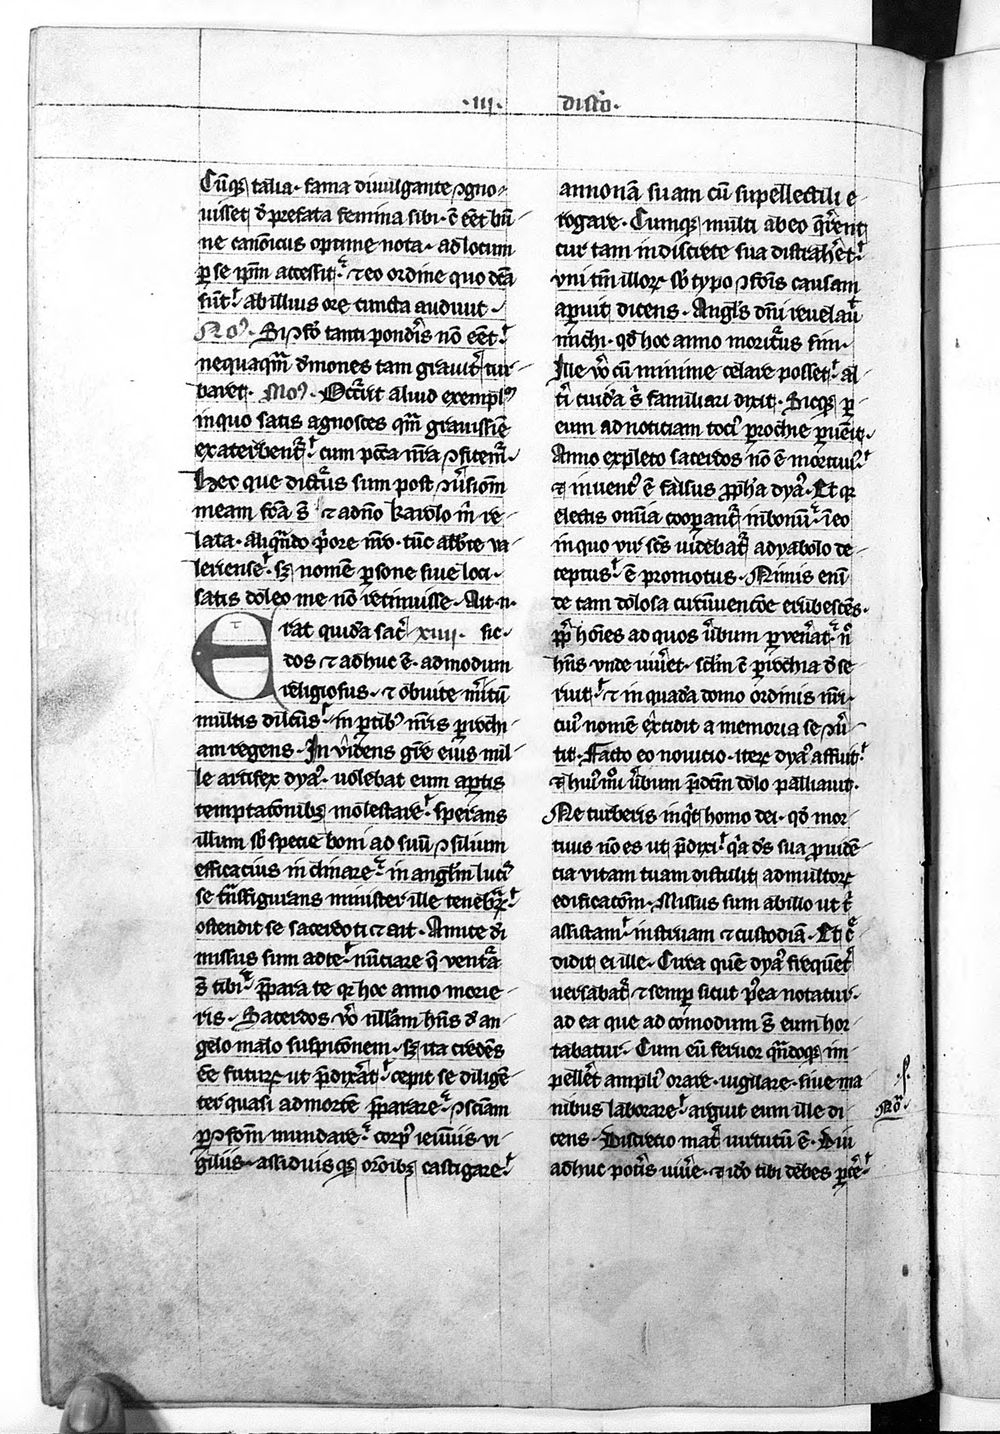 ·iii· disto·
Cūq; talia· fama diuulgante ꝯgno⸗
uisset d̄ prefata femina sibi· ē eēt bn̄
ne canonicus optime nota· ad locum
ꝑ se ip̄m accessit· ⁊ eo ordine quo dc̄a
sūt· ab illius ore cuncta audiuit·
No⁹· Si ꝯfō tanti pondis nō eēt·
nequaq̄m demones tam grauit̓ tur
baret· Mo⁹· Occ̄rit aliud exempl̄
in quo satis agnosces qm̄ grauissīe
exacerbent̓· cum pctā nr̄a ꝯfitem̓·
Hec que dictur̄us sum post ꝯu̓sioem
meam fcā s̄t ⁊ ad̄no karolo m̄ re
lata· aliqn̄do p̓ore nr̄o· tūc abb̄te va
leriense· sꝫ nomē ꝑsone siue loci·
satis doleo me nō retinuisse· Ait· n·
Erat quidā sac̓ xiiii· sic·
dos ⁊ adhuc ē· admodum
religiosus· ⁊ ob uite m̓itū
multis dilc̄us· in ꝑtib⁹ nr̄is ꝑrochi
am regens· Inuidens gr̄e eius mil
le artifex dya⁹· uolebat eum aꝑtis
temptatōnibꝫ molestare· sperans
illum sb̄ specie boni ad suū ꝯsilium
efficacius inclinare· in angl̄m luc̓
se trāsfigurans minister ille tenebrꝝ·
ostendit se sacerdoti ⁊ ait· Amice di
missus sum ad te· nūciare q̄ ventā
s̄ tibi· p̄para te qꝛ hoc anno morie
ris· Sacerdos v̓o nllām hn̄s d̄ an
gelo malo suspitōnem· sꝫ ita credēs
ēe futurꝝ ut p̄dixāt· cepit se diligē
ter quasi ad mortē p̄parare· ꝯsciam
ꝑ ꝯfōm mundare· corp⁹ ieiuniis vi
giliis· assiduisqꝫ orōnibꝫ castigare·
annonā suam cū supellectili e
rogare· Cumqꝫ multi ab eo q̄rent
cur tam indiscrete sua distrah̓et·
vni tm̄ illorꝝ sb̄ typo ꝯfōis causam
aꝑuit dicens· Angl̄s dn̄i reuelauit
michi· qd̄ hoc anno moritur̄us sim·
Ille v̓o cū minime celare posset· al
t̓i cuidā s̓ familiari dixit· Sicqꝫ ꝑ
eum ad noticiam toci⁹ ꝑrochie ꝑuēit·
Anno expleto sacerdos nō ē mortuus·
⁊ inuent⁹ ē falsus ꝓph̄a dya⁹· Et qꝛ
electis omīa cooꝑant̓ in bonū· in eo
in quo vir scs̄ uidebat̓ a dyabolo de
ceptus· ē promotus· Nimis enī
de tam dolosa circūuencōe erubescēs·
ꝓpt̄ hoīes ad quos u̓bum ꝑuen̄at· n̄
hn̄s vnde viu̓et· sclm̄ ⁊ ꝑrochia d̄se
riut· ⁊ in quadā domo ordinis nr̄i·
cui⁹ nomē excidit a memoria se ꝯu̓
tit· Facto eo nouicio· iterꝝ dya⁹ affuit·
⁊ hui⁹mōi u̓bum p̄dcm̄ dolo palliauit·
Ne turberis inq̓t homo dei· qd̄ mor
tuus nō es ut p̄dixi· q̄ d̄s sua prouidē
cia vitam tuam distulit ad multorꝝ
edificatōm· Missus sum ab illo ut t̓
assistam· instruam ⁊ custodiā· Et c̓
didit ei ille· Circa quē dya⁹ freq̄net̓
uersabat̓ ⁊ semp̄ sicut p̓ea notatur·
ad ea que ad comodum s̄t eum hor
tabatur· Cum eū feruor qn̄doqꝫ im
pellēt ampli⁹ orare· uigilare· siue ma
nibus laborare· arguit eum ille di
cens· Discretio mat̓ uirtutū ē· Diu
adhuc pot̓is uiu̓e· ⁊ id̄o tibi debes ꝑc̓e·
No·